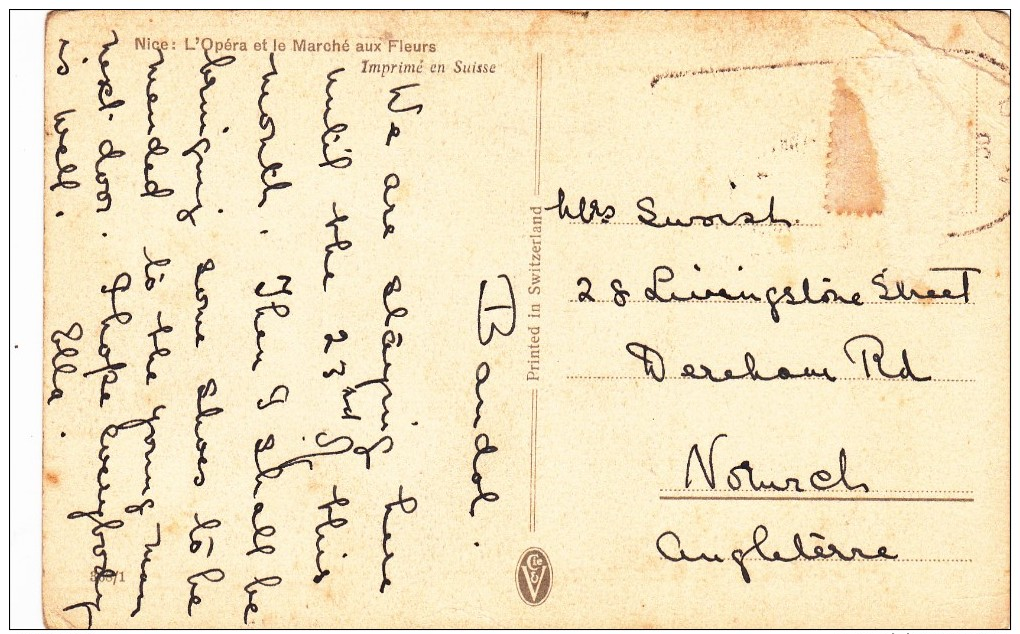 Nice: L'Opéra et le Marché aux Fleurs
Imprimé en Suisse
Bandol.
We are staying here
until the 23rd of this
month. Then I shall be
bringing some shoes to be
mended to the young man
next door. I hope everybody
is well. Ella.
Printed in Switzerland
Mrs
28 Livingstone Street
Dereham Rd
Norwich
Angleterre